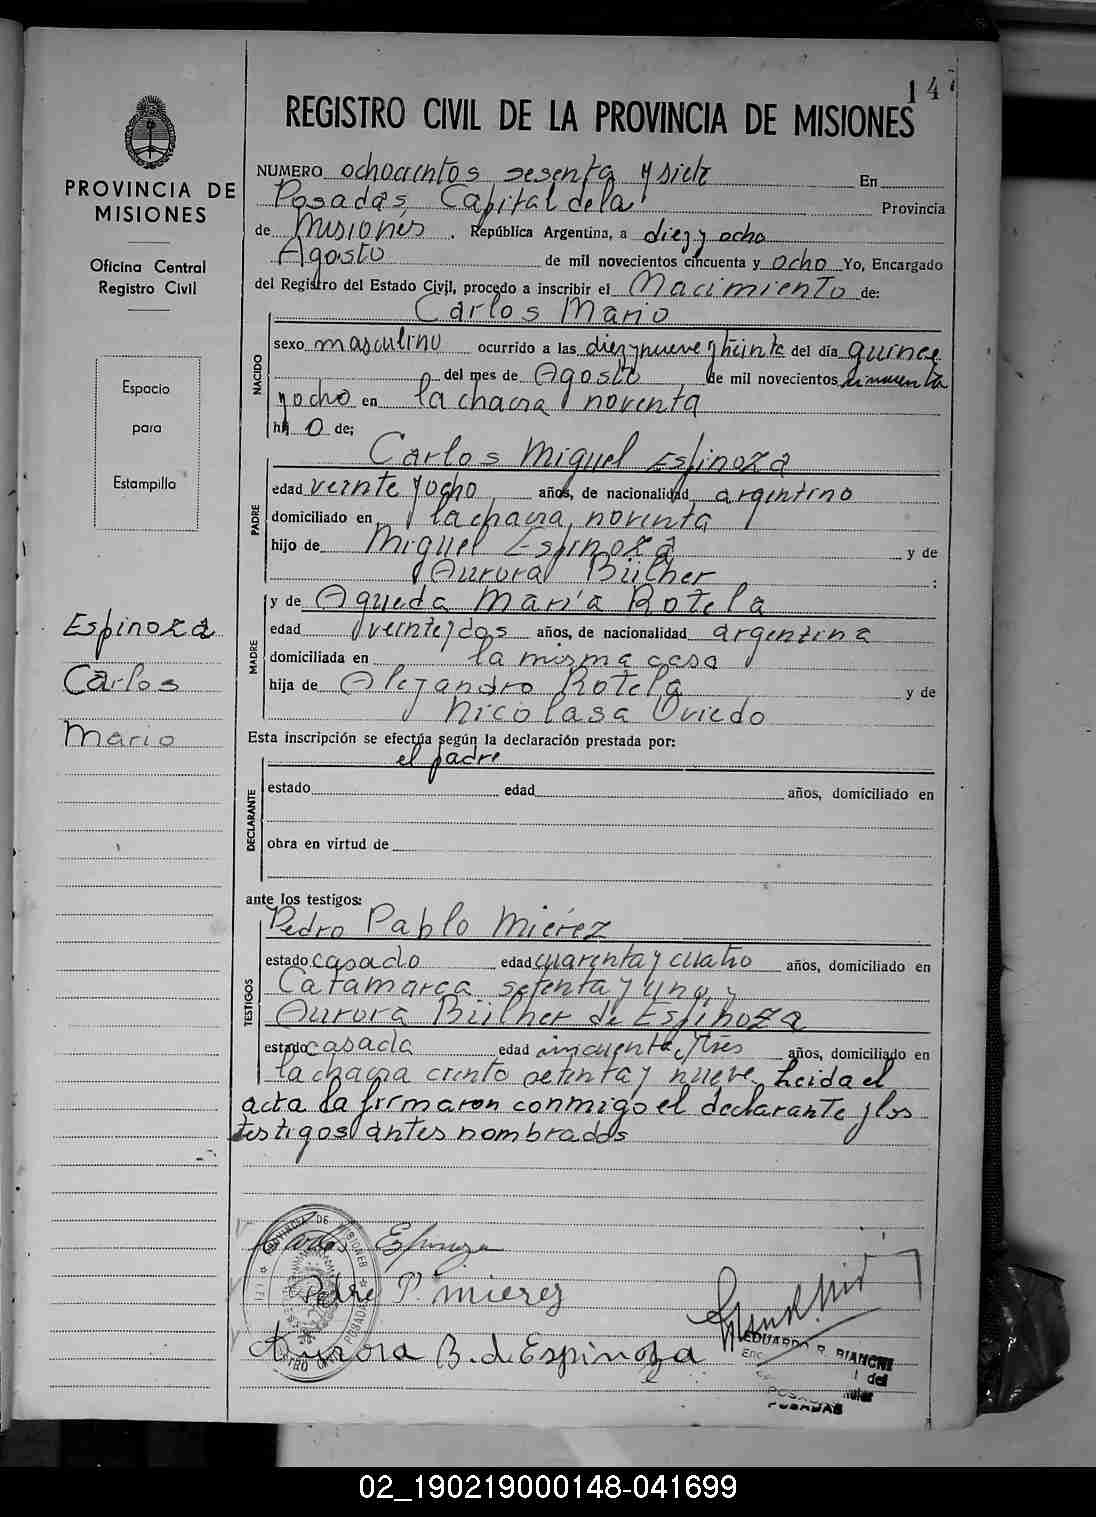 147
REGISTRO CIVIL DE LA PROVINCIA DE MISIONES
PROVINCIA DE
MISIONES
Oficina Central
Registro Civil
Espacio
para
Estampilla
Espinoza
Carlos
Mario
NUMERO ochocientos sesenta y siete En
Posadas, Capital de la Provincia
de Misiones . República Argentina, a diez y ocho
Agosto de mil novecientos cincuenta y ocho Yo, Encargado
del Registro del Estado Civil, procedo a inscribir el Nacimiento de:
NACIDO
Carlos Mario
sexo masculino ocurrido a las diez y nueve y treinta del día quince
del mes de Agosto de mil novecientos cincuenta
y ocho en la chacra noventa
hijo de;
PADRE
Carlos Miguel Espinoza
edad veinte y ocho años, de nacionalidad argentino
domiciliado en la chacra noventa
hijo de Miguel Espinoza y de
Aurora Bülher ;
MADRE
y de Agueda María Rotela
edad veinte y dos años, de nacionalidad argentina
domiciliada en la misma casa
hija de Alejandro Rotela y de
Nicolasa Oviedo
Esta inscripción se efectúa según la declaración prestada por:
DECLARANTE
el padre
estado edad años, domiciliado en
obra en virtud de
ante los testigos:
TESTIGOS
Pedro Pablo Mierez
estado casado edad cuarenta y cuatro años, domiciliado en
Catamarca setenta y uno, y
Aurora Bülher de Espinoza
estado casada edad cincuenta y tres años, domiciliado en
la chacra ciento setenta y nueve. Leida el
acta la firmaron conmigo el declarante y los
testigos antes nombrados
Carlos Espinoza
Pedro P. Mierez
Aurora B. de Espinoza
PROVINCIA DE MISIONES
POSADAS
EDUARDO R. BIANCHI
POSADAS
02_190219000148-041699